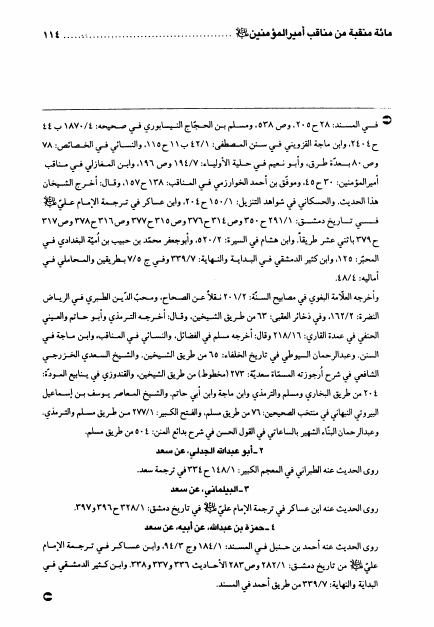 مائة منقبة من مناقب أميرالمؤمنين ﷷ ............................................. ١١٤
في المسند: ٢٨ ح ٢٠٥، وص ٥٣٨، ومسلم بن الحجّاج النيسابوري في صحيحه: ١٨٧٠/٤ ب ٤٤
ح ٢٤٠٤، وابن ماجة القزويني في سنن المصطفى: ٤٢/١ ب ١١ ح ١١٥، والنسائي في الخصائص: ٧٨
وص ٨٠ بعدّة طرق، وأبو نعيم في حلية الأولياء: ١٩٤/٧ وص ١٩٦، وابن المغازلي في مناقب
أميرالمؤمنين: ٣٠ ح ٤٥، وموفّق بن أحمد الخوارزمي في المناقب: ١٣٨ ح ١٥٧، وقال: أخرج الشيخان
هذا الحديث. والحسكاني في شواهد التنزيل: ١٥٠/١ ح ٢٠٤، وابن عساكر في ترجمة الإمام عليّ
في تاريخ دمشق: ٢٩١/١ ح ٣٥٠ وص ٣١٤ ح ٣٧٦ وص ٣١٥ ح ٣٧٧ وص ٣١٦ ح ٣٧٨ وص ٣١٧
ح ٣٧٩ باثني عشر طريقاً، وابن هشام في السيرة: ٥٢٠/٢، وأبوجعفر محمّد بن حبيب بن أميّة البغدادي في
المحبّر: ١٢٥، وابن كثير الدمشقي في البداية والنهاية: ٣٣٩/٧ وفي ج ٧/٥ بطريقين والمحاملي في
أماليه: ٤٨/٤.
وأخرجه العلّامة البغوي في مصابيح السنّة: ٢٠١/٢ نقلاً عن الصحاح، ومحبّ الدّين الطبري في الرياض
النضرة: ١٦٢/٢، وفي ذخائر العقبى: ٦٣ من طريق الشيخين، وقال: أخرجه الترمذي وأبو حاتم والعيني
الحنفي في عمدة القاري: ٢١٨/١٦ وقال: أخرجه مسلم في الفضائل، والنسائي في المناقب، وابن ماجة في
السنن. وعبدالرحمان السيوطي في تاريخ الخلفاء: ٦٥ من طريق الشيخين. والشيخ السعدي الخزرجي
الشافعي في شرح أرجوزته المسمّاة سعديّة: ٢٧٣ (مخطوط) من طريق الشيخين، والقندوزي في ينابيع المودّة:
٢٠٤ من طريق البخاري ومسلم والترمذي وابن ماجة وابن أبي حاتم. والشيخ المعاصر يوسف بن إسماعيل
البيروتي النبهاني في منتخب الصحيحين: ٧٦ من طريق مسلم، والفتح الكبير: ٢٧٧/١ من طريق مسلم والترمذي.
وعبدالرحمان البنّاء الشهير بالساعاتي في القول الحسن في شرح بدائع المنن: ٥٠٤ من طريق مسلم.
٢ - أبو عبدالله الجدلي، عن سعد
روى الحديث عنه الطبراني في المعجم الكبير: ١٤٨/١ ح ٣٣٤ في ترجمة سعد.
٣ - البيلماني، عن سعد
روى الحديث عنه ابن عساكر في ترجمة الإمام عليّ في تاريخ دمشق: ٣٢٨/١ ح ٣٩٦ و ٣٩٧.
٤ - حمزة بن عبدالله، عن أبيه، عن سعد
روى الحديث عنه أحمد بن حنبل في المسند: ١٨٤/١ وج ٩٤/٣، وابن عساكر في ترجمة الإمام
عليّ من تاريخ دمشق: ٢٨٢/١ وص ٢٨٣ الأحاديث ٣٣٦ و ٣٣٧ و ٣٣٨. وابن كثير الدمشقي في
البداية والنهاية: ٣٣٩/٧ من طريق أحمد في المسند.